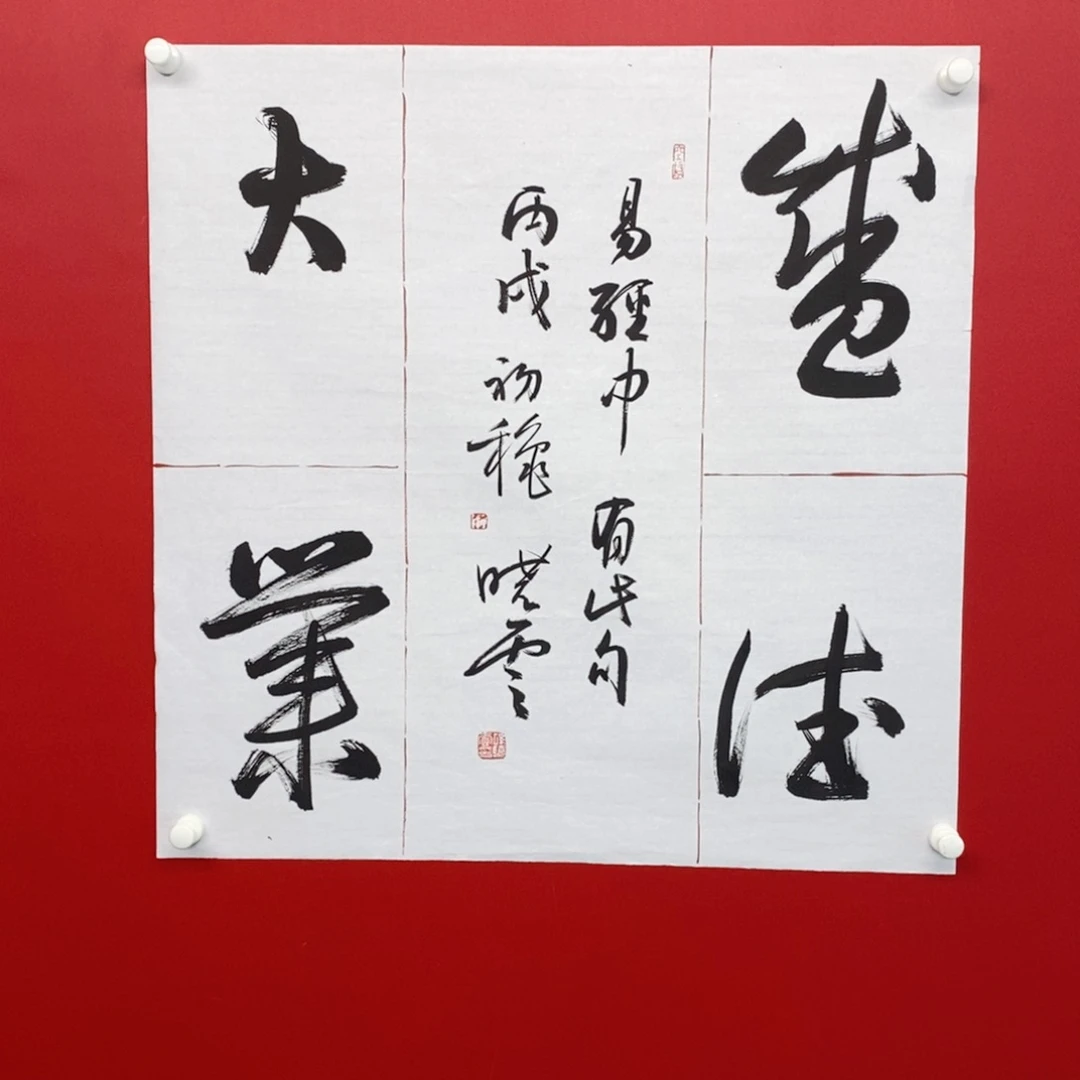 盛德
大業
易經中有此句
丙戌初穐曉雲